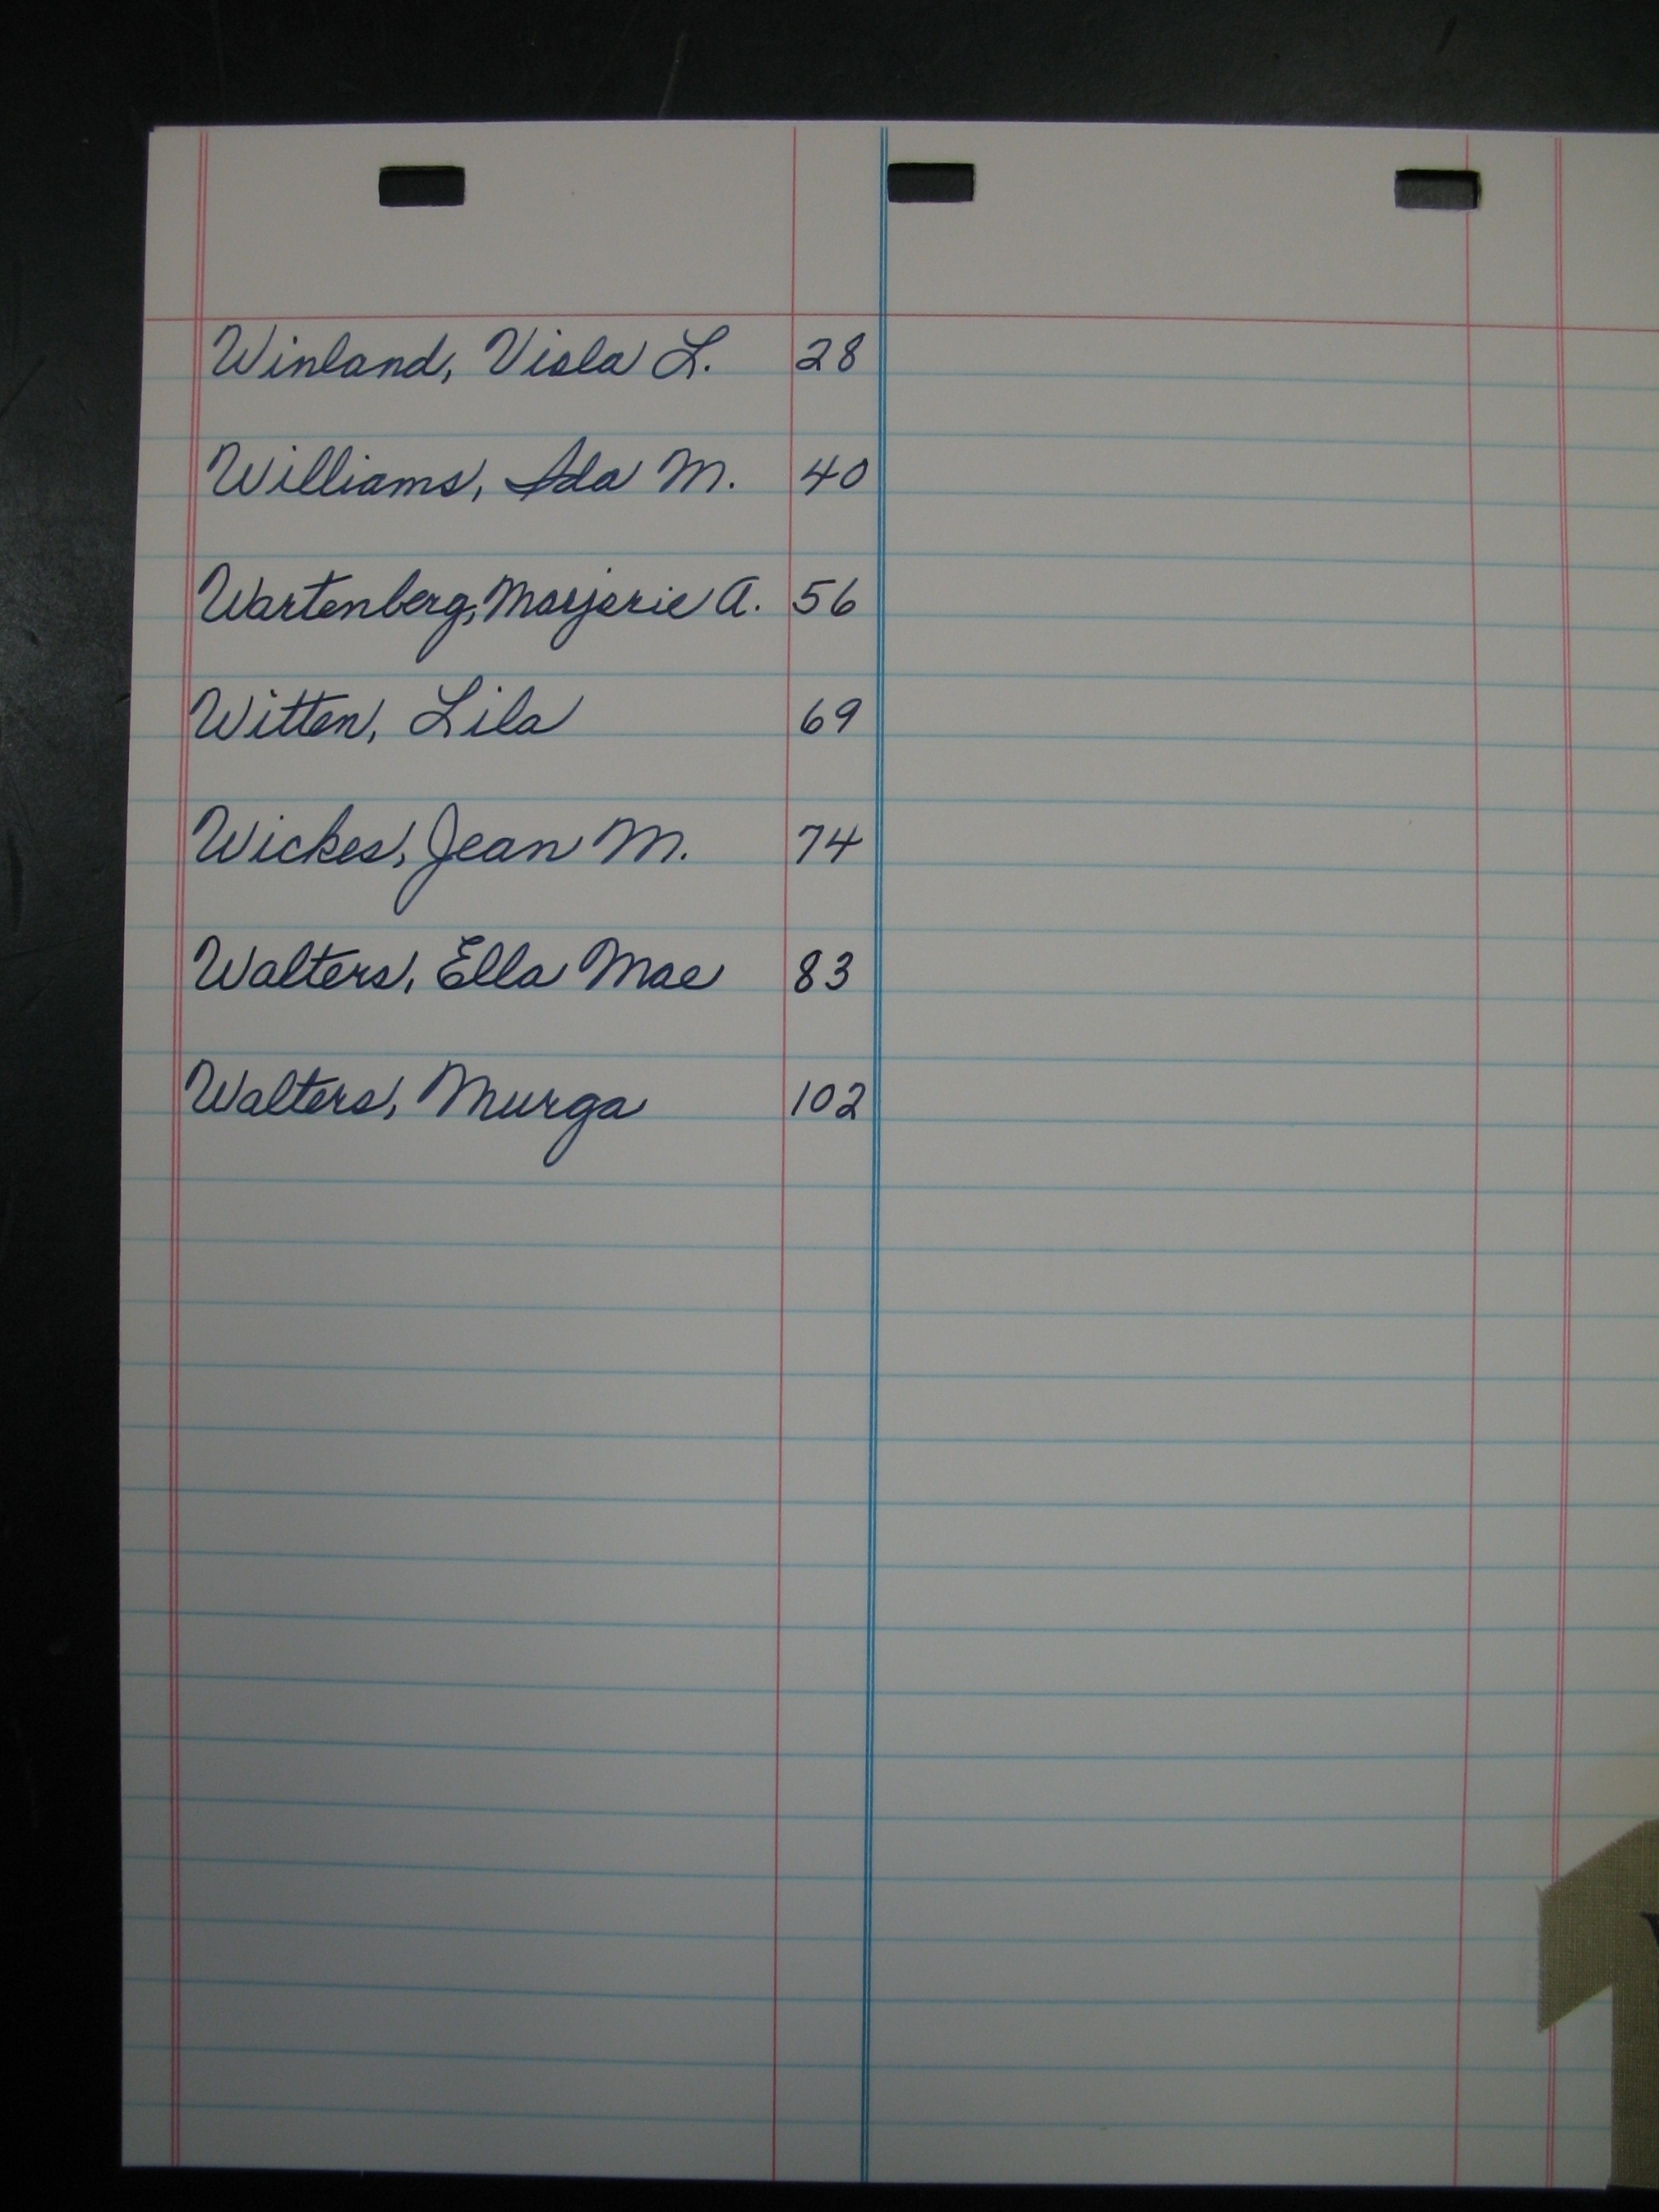 Winland, Viola L. 28
Williams, Ada M. 40
Wartenberg, Marjorie A. 56
Witten, Lila 69
Wickes, Jean M. 74
Walters, Ella Mae 83
Walters, Murga 102